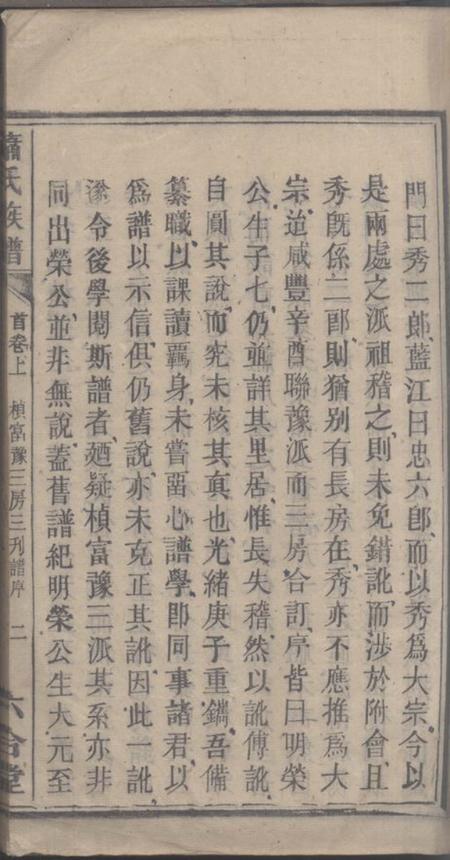 門曰秀二郎、藍江曰忠六郎、而以秀爲大宗、今以
是兩處之派祖稽之、則未免錯訛、而涉於附會、且
秀旣係二郎、則猶別有長房在、秀亦不應推爲大
宗、迨咸豐辛酉聯豫派而三房合訂、序皆曰明榮
公生子七、仍並詳其里居、惟長失稽、然以訛傳訛、
自圓其說、而究未核其眞也、光緒庚子重鐫、吾備
纂職、以課讀羈身、未嘗留心譜學、卽同事諸君、以
爲譜以示信、俱仍舊說、亦未克正其訛、因此一訛、
遂令後學閱斯譜者、廼疑楨富豫三派其系亦非
同出榮公、並非無說、蓋舊譜紀明榮公生大元至
蕭氏族譜 首卷上 楨富豫三房三刊譜序 二 六合堂